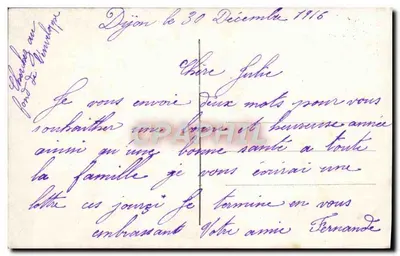 Dijon le 30 Décembre 1916
Cherchez au
fond de l'enveloppe
Chère Julie
Je vous envoie deux mots pour vous
souhaither une bonne et heureuse année
ainsi qu'une bonne santé a toute
la famille je vous écrirai une
lettre ces jours çi Je termine en vous
embrassant Votre amie Fernande